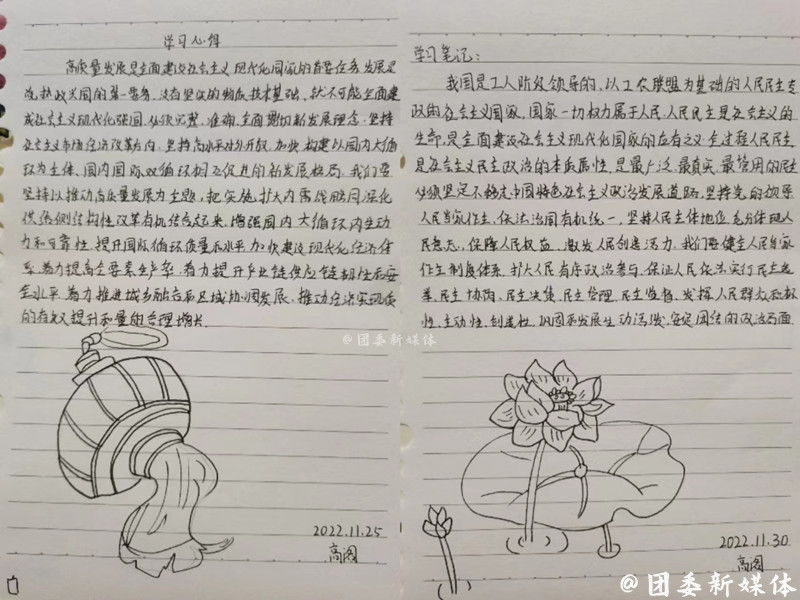 学习心得
高质量发展是全面建设社会主义现代化国家的首要任务.发展是
党执政兴国的第一要务.没有坚实的物质技术基础.就不可能全面建
成社会主义现代化强国.必须完整.准确.全面贯彻新发展理念.坚持
社会主义市场经济改革方向.坚持高水平对外开放.加快构建以国内大循
环为主体、国内国际双循环相互促进的新发展格局.我们要
坚持以推动高质量发展为主题.把实施扩大内需战略同深化
供给侧结构性改革有机结合起来.增强国内大循环内生动
力和可靠性.提升国际循环质量和水平.加快建设现代化经济体
系.着力提高全要素生产率.着力提升产业链供应链韧性和安
全水平.着力推进城乡融合和区域协调发展.推动经济实现质
的有效提升和量的合理增长.
2022.11.25
高阁
学习笔记：
我国是工人阶级领导的、以工农联盟为基础的人民民主专
政的社会主义国家.国家一切权力属于人民.人民民主是社会主义的
生命.是全面建设社会主义现代化国家的应有之义.全过程人民民主
是社会主义民主政治的本质属性.是最广泛.最真实.最管用的民主
必须坚定不移走中国特色社会主义政治发展道路.坚持党的领导
人民当家作主.依法治国有机统一.坚持人民主体地位.充分体现人
民意志.保障人民权益.激发人民创造活力.我们要健全人民当家
作主制度体系.扩大人民有序政治参与.保证人民依法实行民主选
举.民主协商.民主决策.民主管理.民主监督.发挥人民群众积极
性.主动性.创造性.巩固和发展生动活泼.安定团结的政治局面.
2022.11.30
高阁
@团委新媒体
@团委新媒体